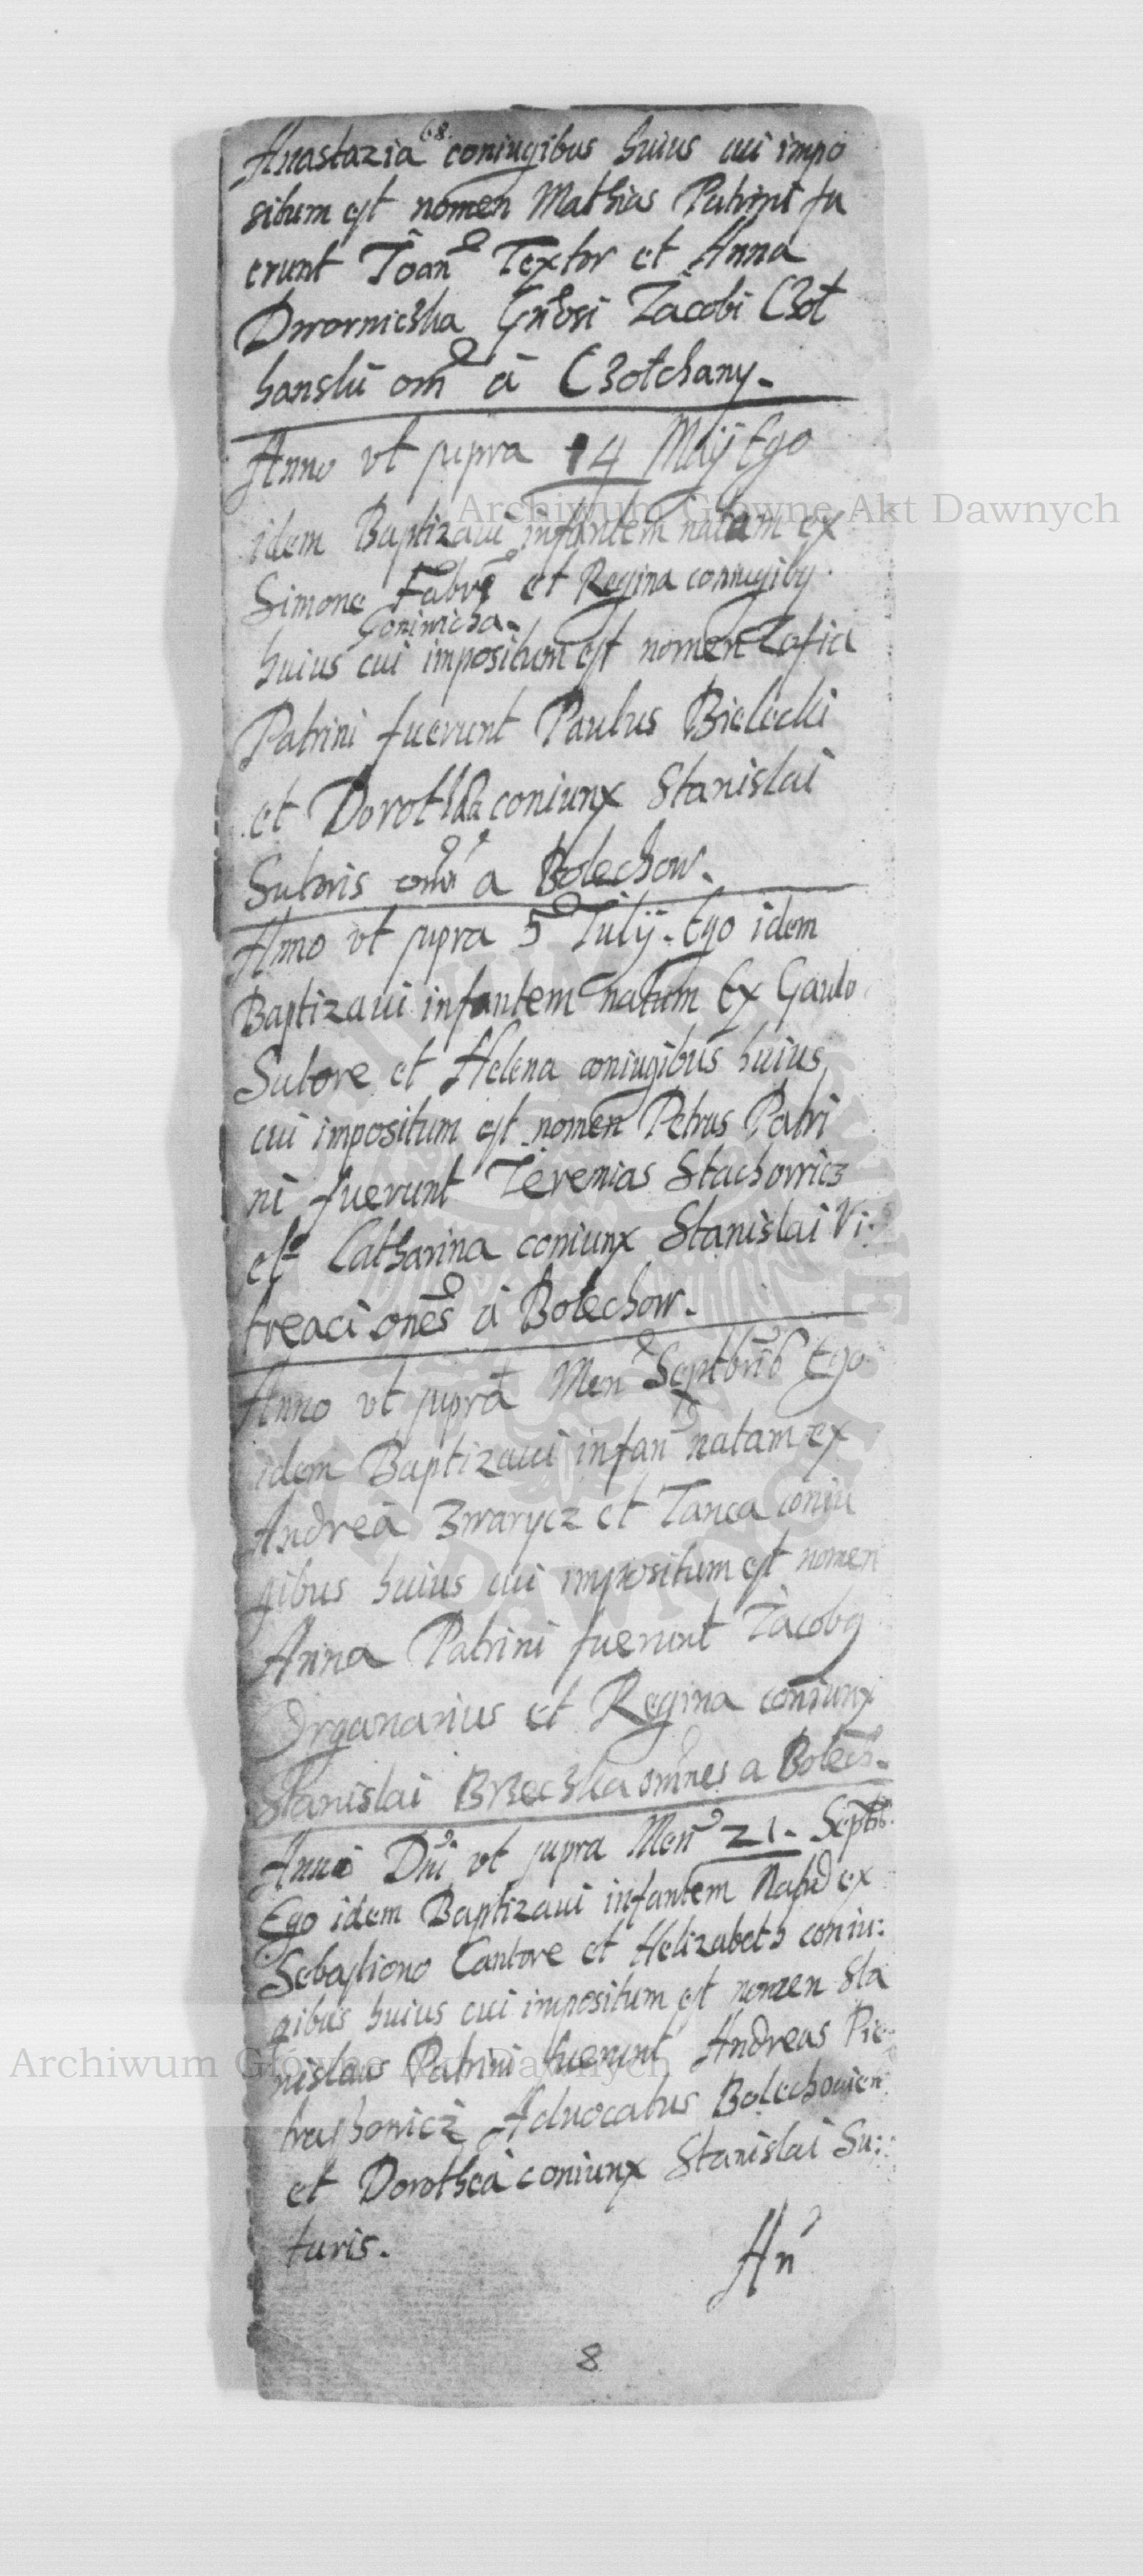 68.
Anastazia coniugibus huius cui impo
situm est nomen Mathias Patrini fu
erunt Joan Textor et Anna
Dwornicżka Gnosi Jacobi Czoł
hanski om a Czołchany.
Anno vt supra 14 Maij Ego
idem Baptizaui infantem natam ex
Simone Fabro et Regina coniugibq
Goniwicha.
huius cui impositum est nomen Zofia
Patrini fuerunt Paulus Bielecki
et Dorothea coniunx Stanislai
Sutoris omn a Bolechow.
Anno vt supra 5 Julij. Ego idem
Baptizaui infantem natum Ex Gawlo
Sutore et Helena coniugibus huius
cui impositum est nomen Petrus Patri
ni fuerunt Jeremias Stachowicz
et Catharina coniunx Stanislai Vi:
treaci ones a Bolechow.
Anno vt supra Men Septbris Ego
idem Baptizaui infan natam ex
Andrea Zwarycz et Tanca coniu
gibus huius cui impositum est nomen
Anna Patrini fuerunt Jacobq
Organarius et Regina coniunx
Stanislai Brzeczka omnes a Bolech.
Anno Dni vt supra Men 21. Septb.
Ego idem Baptizaui infantem Natu ex
Sebastiono Cantore et Helizabeth coniu:
gibus huius cui impositum est nomen Sta
nislaus Patrini fuerunt Andreas Pie
traszhowicz Aduocatus Bolechouien
et Dorothea coniunx Stanislai Su:
turis.
An
8
Archiwum Główne Akt Dawnych
Archiwum Główne Akt Dawnych